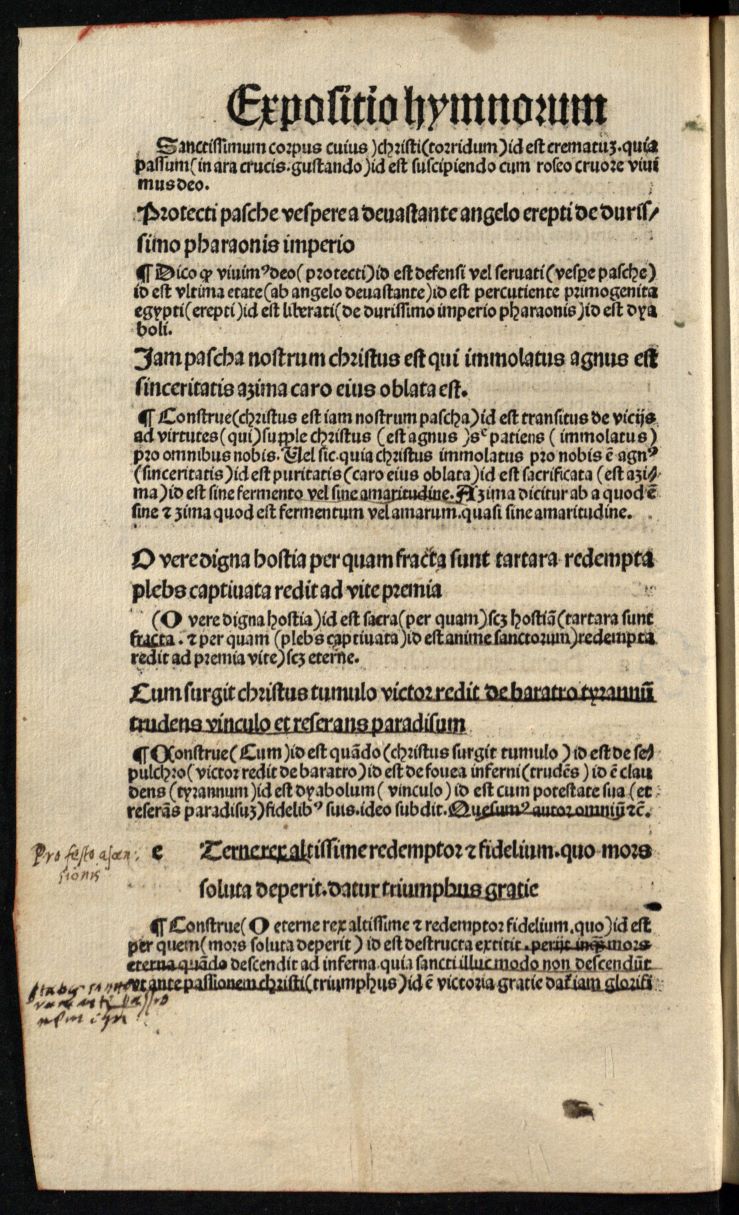 Expositio hymnorum
Sanctissimum corpus cuius )christi(torridum)id est crematuꝫ.quia
passum(in ara crucis.gustando)id est suscipiendo cum roseo cruore viui
mus deo.
Protecti pasche vespere a deuastante angelo erepti de duris/
simo pharaonis imperio
¶ Dico ꝙ viuimꝰ deo( protecti)id est defensi vel seruati(vesꝑe pasche)
id est vltima etate(ab angelo deuastante)id est percutiente primogenita
egypti(erepti)id est liberati(de durissimo imperio pharaonis)id est dya
boli.
Jam pascha nostrum christus est qui immolatus agnus est
sinceritatis azima caro eius oblata est.
¶ Construe(christus est iam nostrum pascha)id est transitus de vicijs
ad virtutes(qui)supple christus (est agnus )sᶜ patiens ( immolatus)
pro omnibus nobis. Uel sic.quia christus immolatus pro nobis ē agnꝰ
(sinceritatis)id est puritatis(caro eius oblata)id est sacrificata (est azi/
ma)id est sine fermento vel sine amaritudine.Azima dicitur ab a quod ē
sine ⁊ zima quod est fermentum vel amarum.quasi sine amaritudine.
O vere digna hostia per quam fracta sunt tartara redempta
plebs captiuata redit ad vite premia
(O vere digna hostia)id est sacra(per quam)scꝫ hostiā(tartara sunt
fracta. ⁊ per quam (plebs captiuata)id est anime sanctorum)redempta
redit ad premia vite)scꝫ eterne.
Cum surgit christus tumulo victor redit de baratro tyrannū
trudens vinculo et reserans paradisum
¶ Construe( Cum)id est quādo(christus surgit tumulo ) id est de se/
pulchro(victor redit de baratro)id est de fouea inferni(trudēs) id ē clau
dens (tyrannum)id est dyabolum( vinculo) id est cum potestate sua (et
reserās paradisuꝫ)fidelibꝰ suis.ideo subdit.Quesumꝰ autor omniū ⁊c.
Pro festo ascen
sionis
e Terne rex altissime redemptor ⁊ fidelium.quo mors
soluta deperit.datur triumphus gratie
¶ Construe( O eterne rex altissime ⁊ redemptor fidelium.quo)id est
per quem(mors soluta deperit) id est destructa extitit.perijt inqꝫ mors
eterna quādo descendit ad inferna.quia sancti illuc modo non descendūt
vt ante passionem christi(triumphus)id ē victoria gratie daꝉ iam glorifi